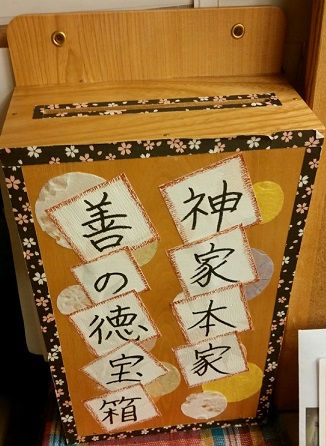 神家本家
善の徳宝箱